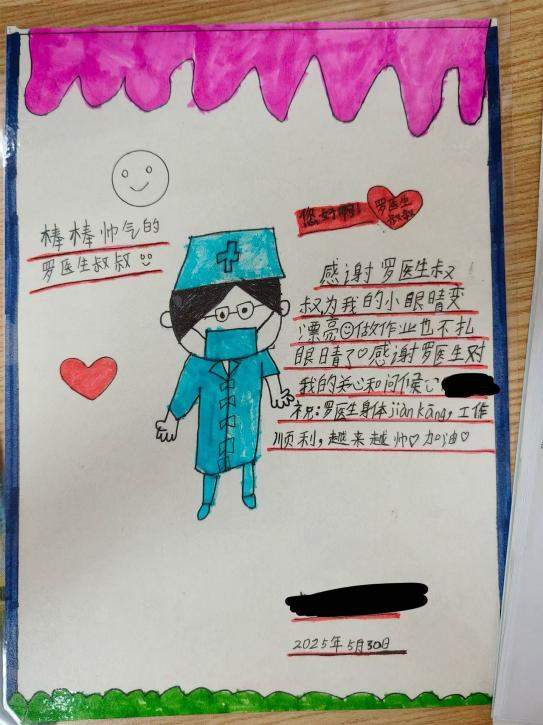 棒棒帅气的
罗医生叔叔
您好啊!
罗医生
叔叔
感谢罗医生叔
叔为我的小眼睛变
漂亮做作业也不扎
眼睛了感谢罗医生对
我的关心和问候
祝:罗医生身体jiàn kāng,工作
顺利,越来越帅♡加油♡
2025年5月30日